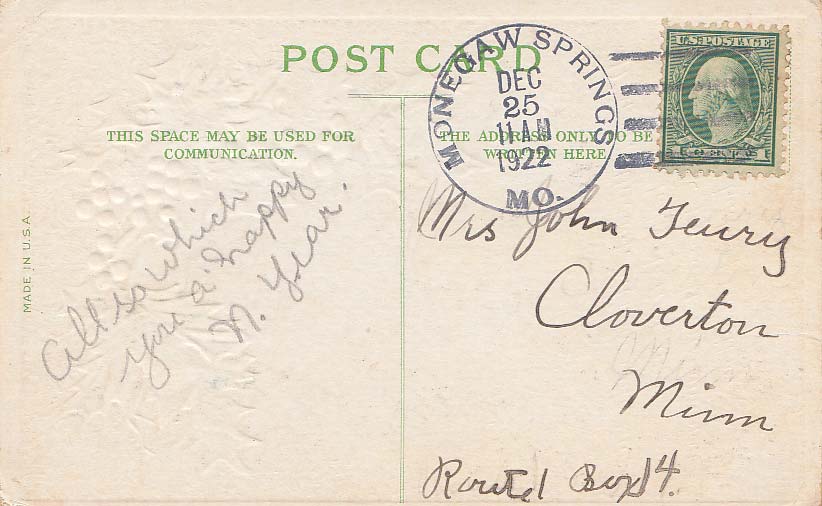 POST CARD
THIS SPACE MAY BE USED FOR
COMMUNICATION.
THE ADDRESS ONLY TO BE
WRITTEN HERE
MADE IN U.S.A.
MONEGAW SPRINGS
DEC
25
11 AM
1922
MO.
U.S. POSTAGE
All so which
you a happy
N. Year.
Mrs John
Cloverton
Minn
Route 1 Box 14.